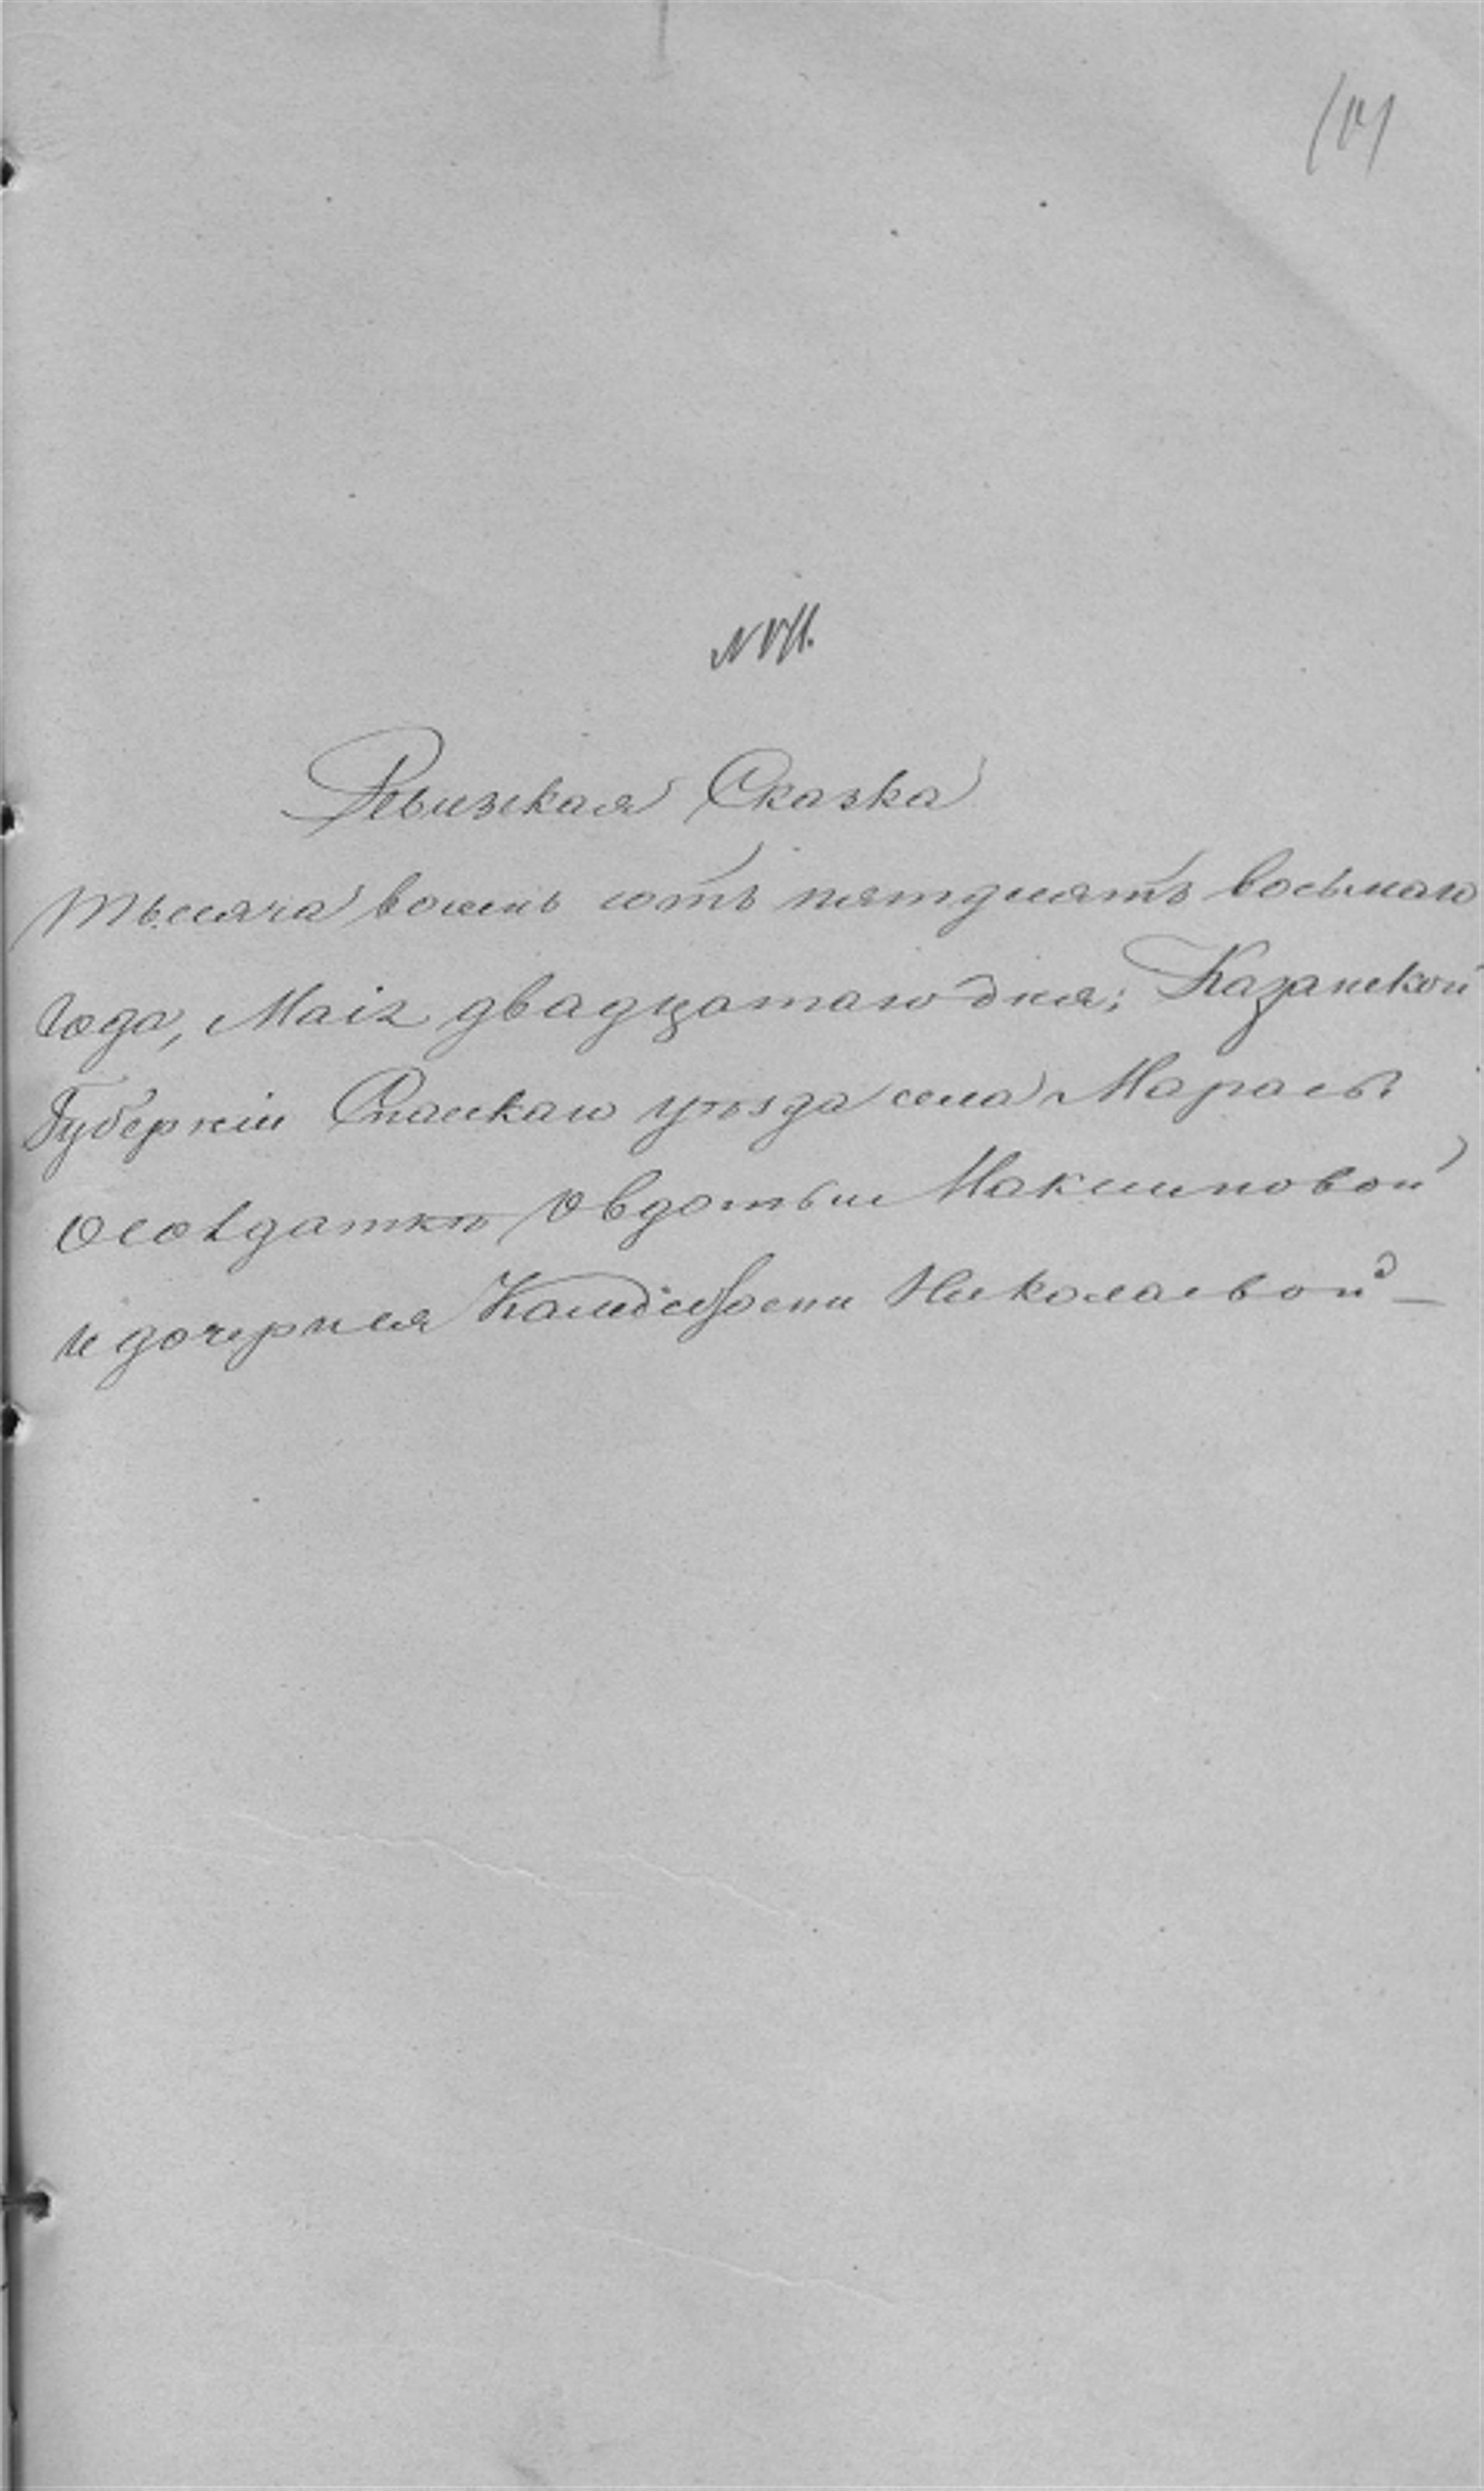 Ревизская Сказка
тысяча восемь сотъ пятдесятъ восьмаго
года, Маія двадцатаго дня; Казанской
Губерніи Спаскаго уѣзда села Марасы
о солдаткѣ Овдотьи Максимовой
и дочерѣ ея Николаевой